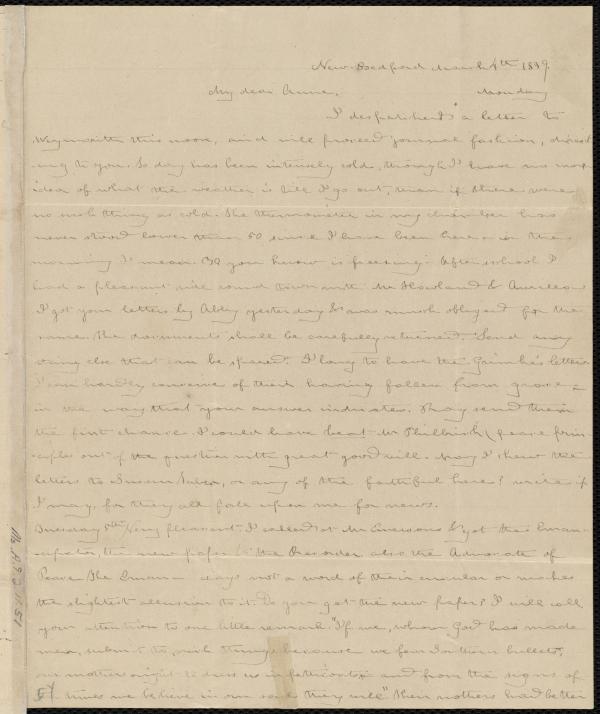 New-Bedford March 4th 1839.
My dear Anne, Monday
I despatched a letter to
Weymouth this noon, and will proceed journal fashion, direct
ing to you. To day has been intensely cold, though I have no more
idea of what the weather is till I go out, than if there were
no such thing as cold. The thermometer in my chamber has
never stood lower than 50 since I have been here - in the
morning I mean. 32 you know is freezing. After school I
had a pleasant ride round town with Mr Howland &
I got your letters by Abby yesterday & was much obliged for the
same. The documents shall be carefully returned. Send any
thing else that can be spared. I long to have the Grimké's letters
I can hardly conceive of their having fallen from grace
in the way that your answer indicates. Pray send them
the first chance. I could have beat Mr Philbrick's peace prin-
ciples out of the question with great good will. May I show the
letters to Susan or any of the faithful here? write if
I may, for they all fall upon me for news.
Tuesday 5th. Very pleasant. I called at Mr Emerson's & got the Eman-
cipator, the new paper & the Recorder also the Advocate of
Peace. The Eman- says not a word of their circular or makes
the slightest allusion to it. Do you get the new paper? I will call
your attention to one little remark. "If we, whom God has made
men, submit to such things because we fear Southern bullets,
our mothers ought to dress us in petticoats and from the signs of
times we believe in our souls they will" Their mothers had better
Ms.A.9.2.11.51